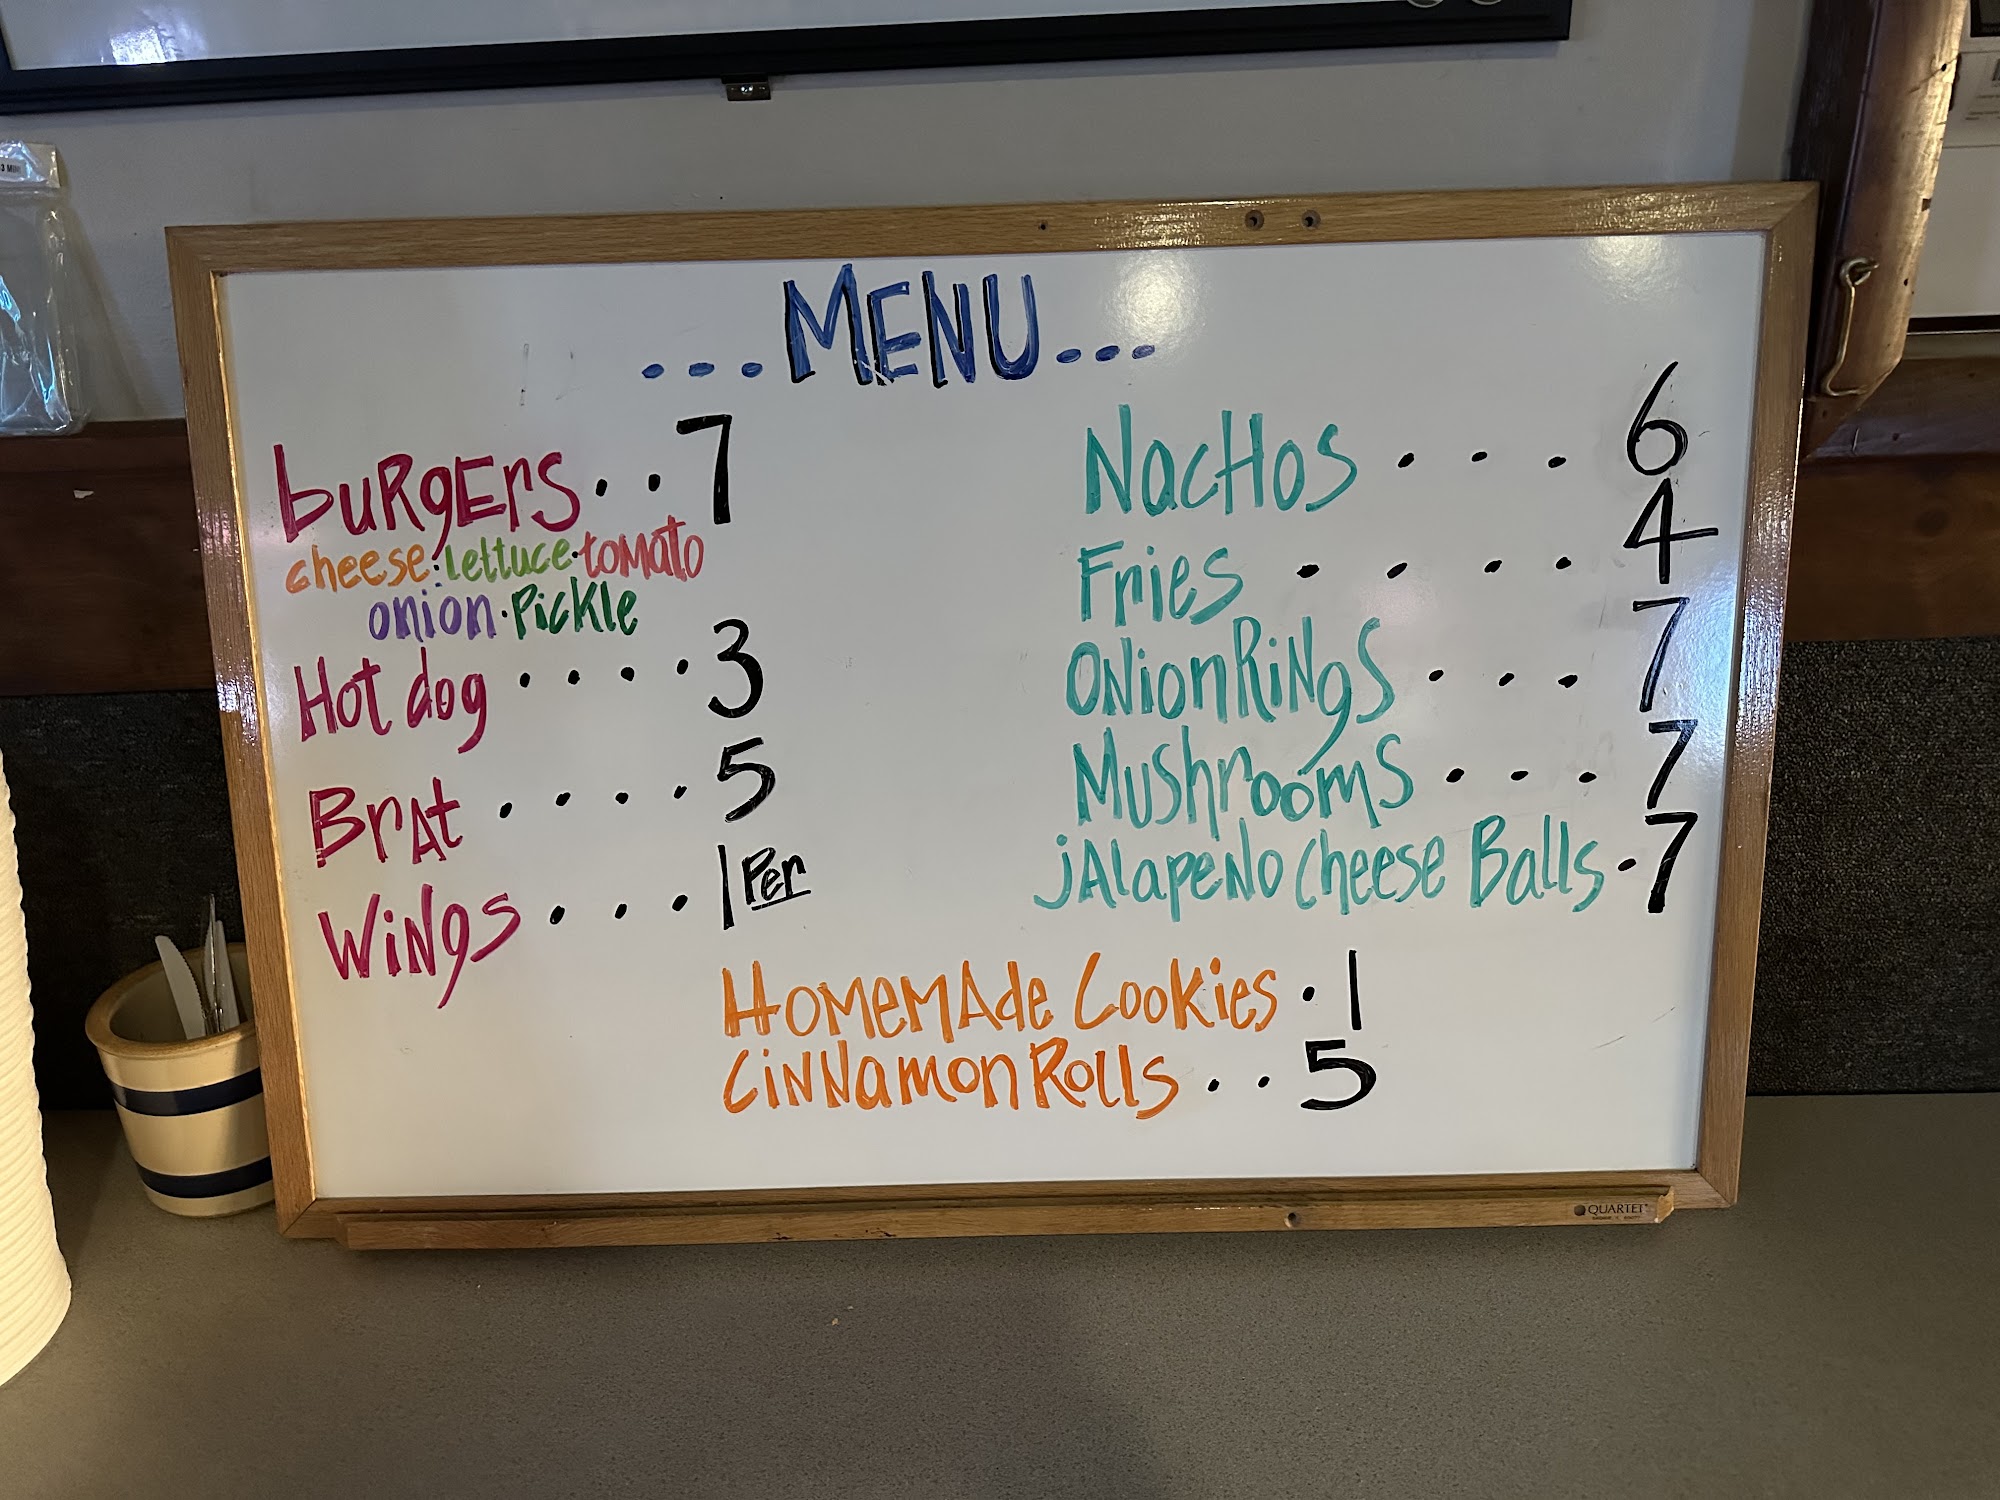 ...MENU...
burgers..7
cheese·lettuce·tomato
onion·pickle
Hot dog....3
Brat....5
Wings...1 Per
Nachos...6
Fries....4
Onion Rings...7
Mushrooms...7
Jalapeno Cheese Balls.7
Homemade Cookies.1
Cinnamon Rolls..5
QUARTET